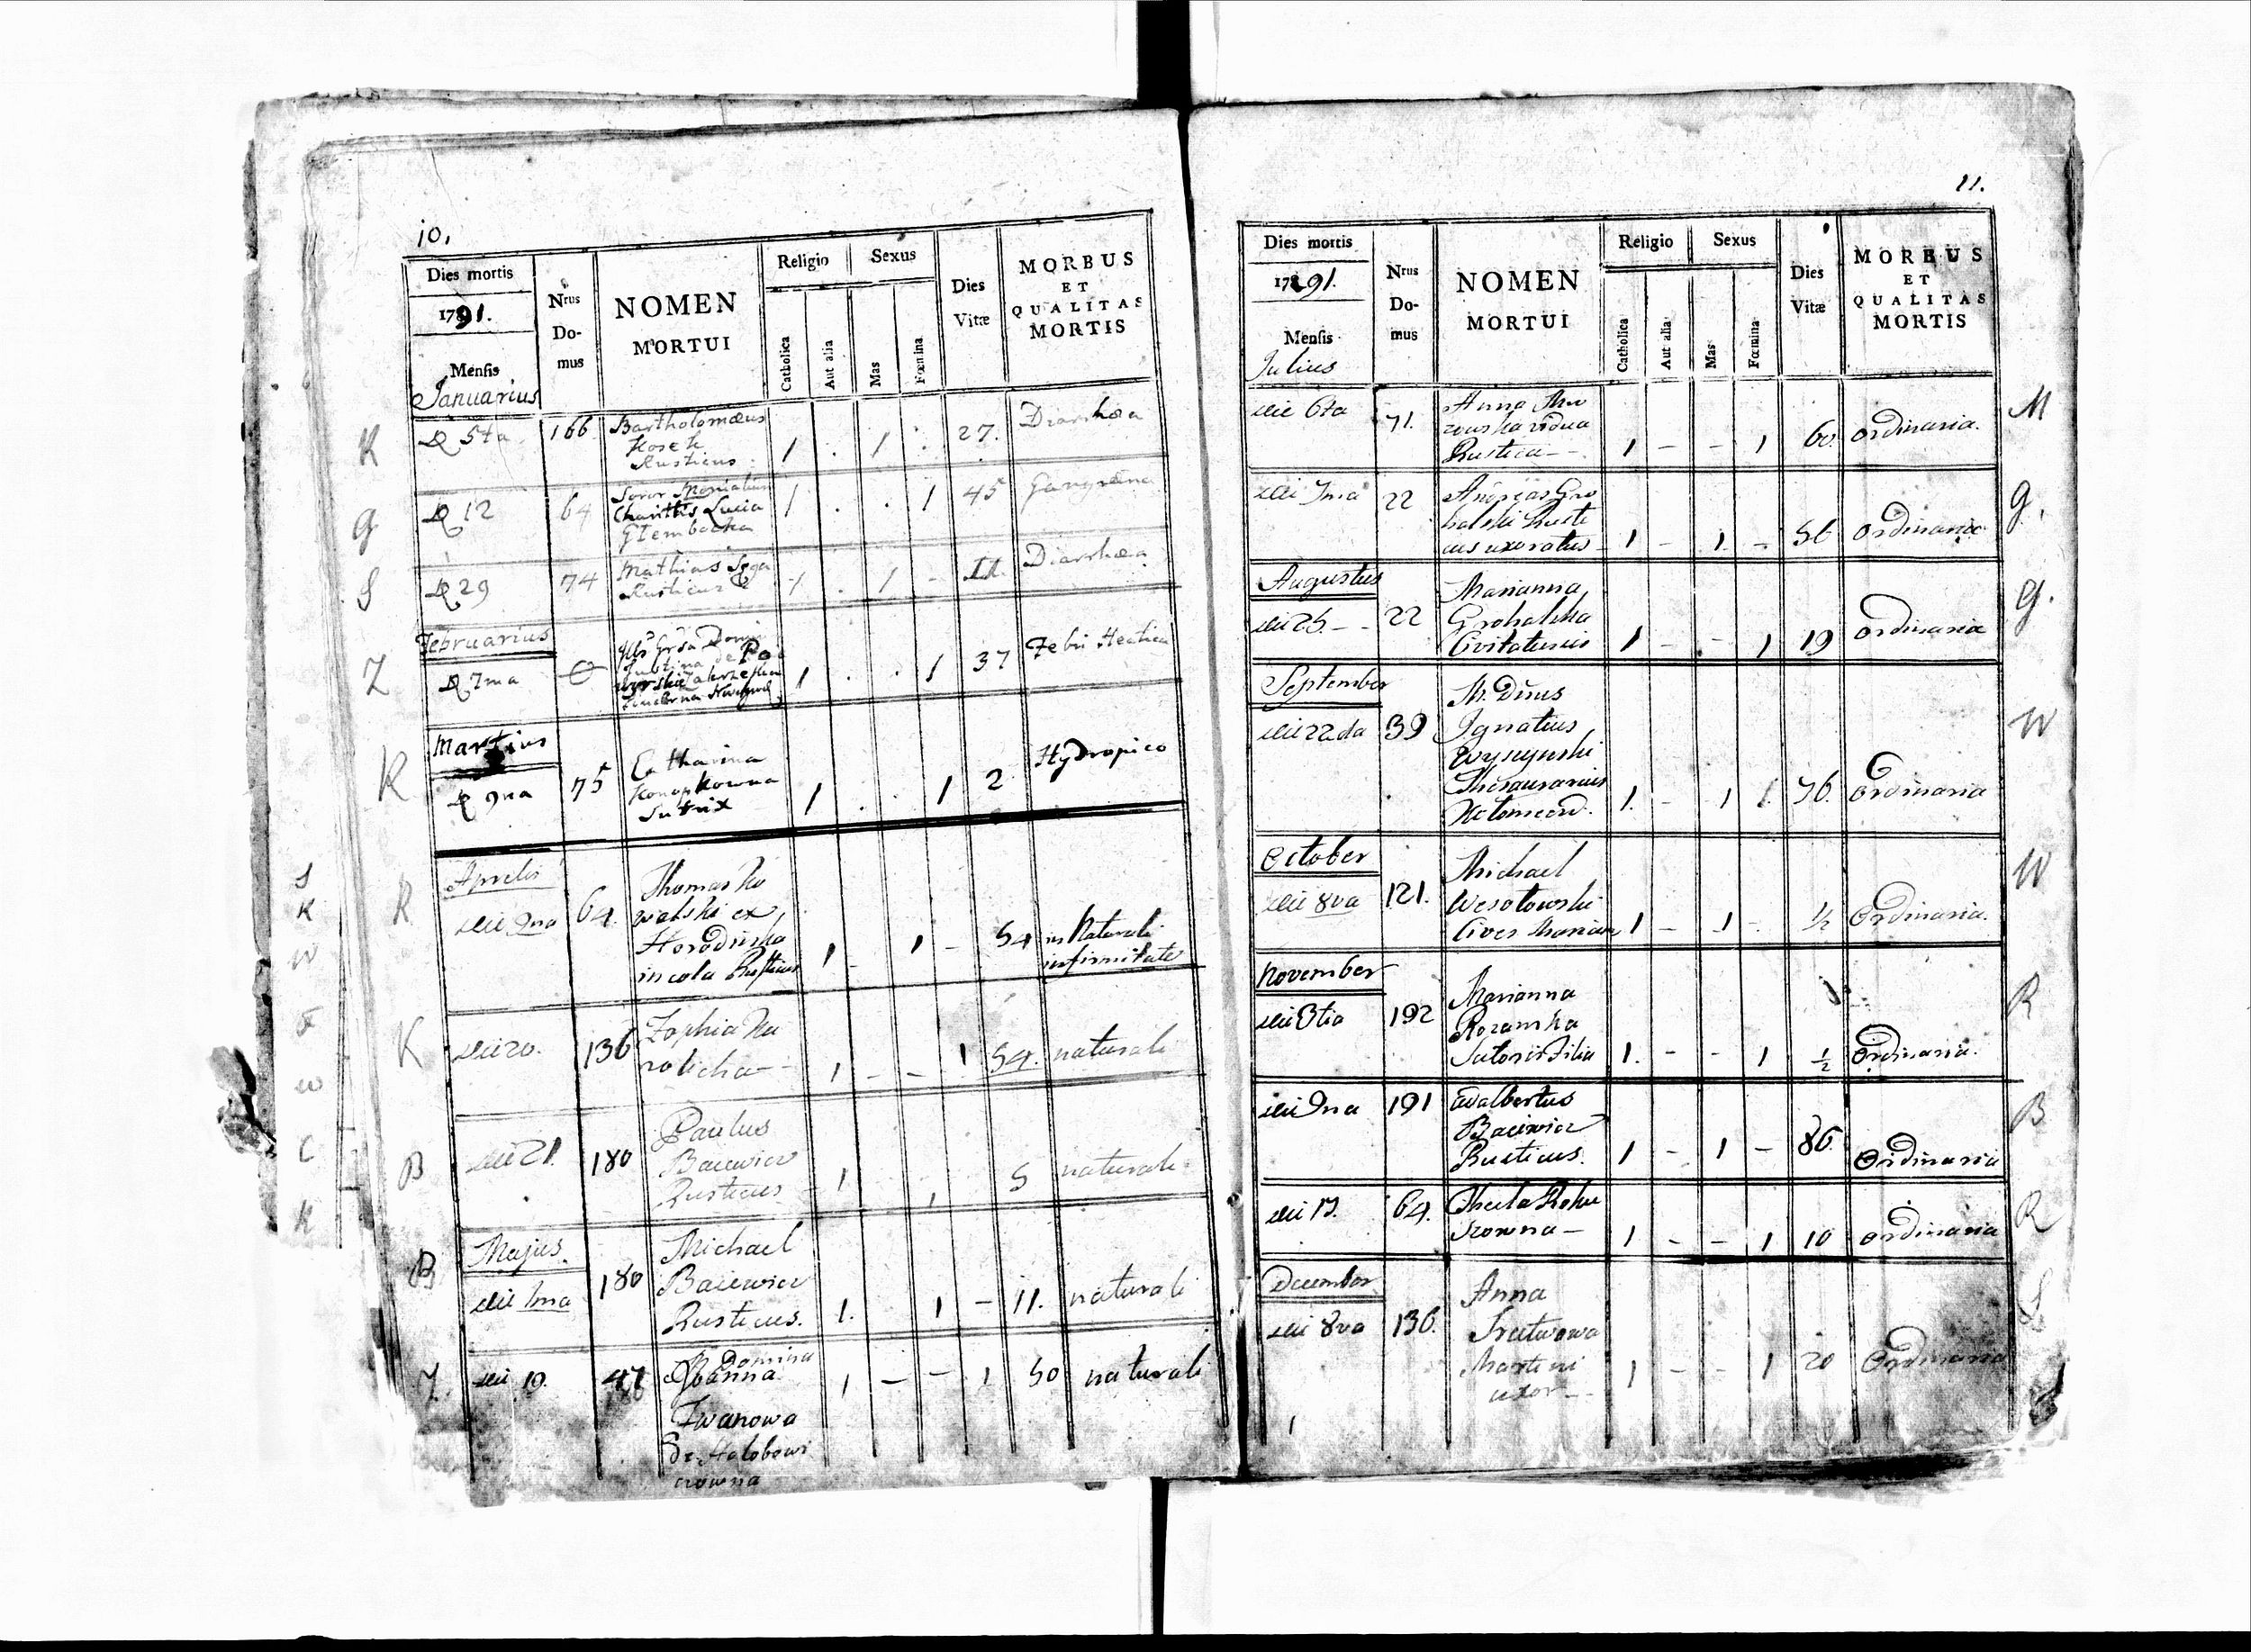 10.
Dies mortis
1791.
Mensis
Januarius
Nrus
Do-
mus
NOMEN
MORTUI
Religio
Catholica
Aut alia
Sexus
Mas
Fœmina
Dies
Vitæ
MORBUS
ET
QUALITAS
MORTIS
K
5ta 166 Bartholomæus 1 . 1 . 27. Diarrhœa
Kosek
Rusticus
G
12 64 Soror Monialium 1 . . 1 45 Gangræna
Charitis Lucia
Glembocka
S
29 74 Mathias 1 . 1 - Diarrhœa
Rusticus
Februarius
Z
7ma 1 . . 1 37 Febri Hectica
Justina de
Martius
K
9na 75 Catharina 1 . . 1 2 Hydropico
Konopkowna
Sutrix
Aprilis
K
die 9na 64. Thomas Ko 1 - 1 - 54 in Naturali
walski ex infirmitate
Horodinka
incola Rusticus
K
die 20. 136 Zophia Ka 1 - - 1 54. naturali
rolicha -
B
die 21. 180 Paulus 1 1 5 naturali
Baiewicz
Rusticus
Majus.
B
die 1ma 180 Michael 1. 1 - 11. naturali
Baiewicz
Rusticus.
die 19. 47 Domina 1 - - 1 50 naturali
Joanna
Iwanowa
de Holobowi
czowna
S
K
W
F
W
C
K
11.
Dies mortis
1791.
Mensis
Julius
Nrus
Do-
mus
NOMEN
MORTUI
Religio
Catholica
Aut alia
Sexus
Mas
Fœmina
Dies
Vitæ
MORBUS
ET
QUALITAS
MORTIS
die 6ta 71. Anna 1 - - 1 60. ordinaria. M
vidua
Rustica -
die 7ma 22 Andreas Gro 1 - 1 - 56 ordinaria G.
halski Rusti
cus uxoratus
Augustus
die 25. - 22 Marianna 1 - - 1 19 ordinaria G.
Grohalska
Civitatensis
September
die 22da 39 M. Dnus 1. - 1 1 76. Ordinaria W
Ignatius
Wyszynski
Thesaurarius
October
die 8va 121. Michael 1 - 1 - 1/2 Ordinaria. W
Wesolowski
Cives
November
die 3tia 192 Marianna 1. - - 1 1/2 Ordinaria. R
Rozanska
Sutoris Filia
die 9na 191 Adalbertus 1 - 1 - 86. Ordinaria B
Baiewicz
Rusticus.
die 17. 64. Thecla Roku 1 - - 1 10 ordinaria R
szowna -
December
die 8va 136. Anna 1 - - 1 20 Ordinaria S
Martini
uxor -